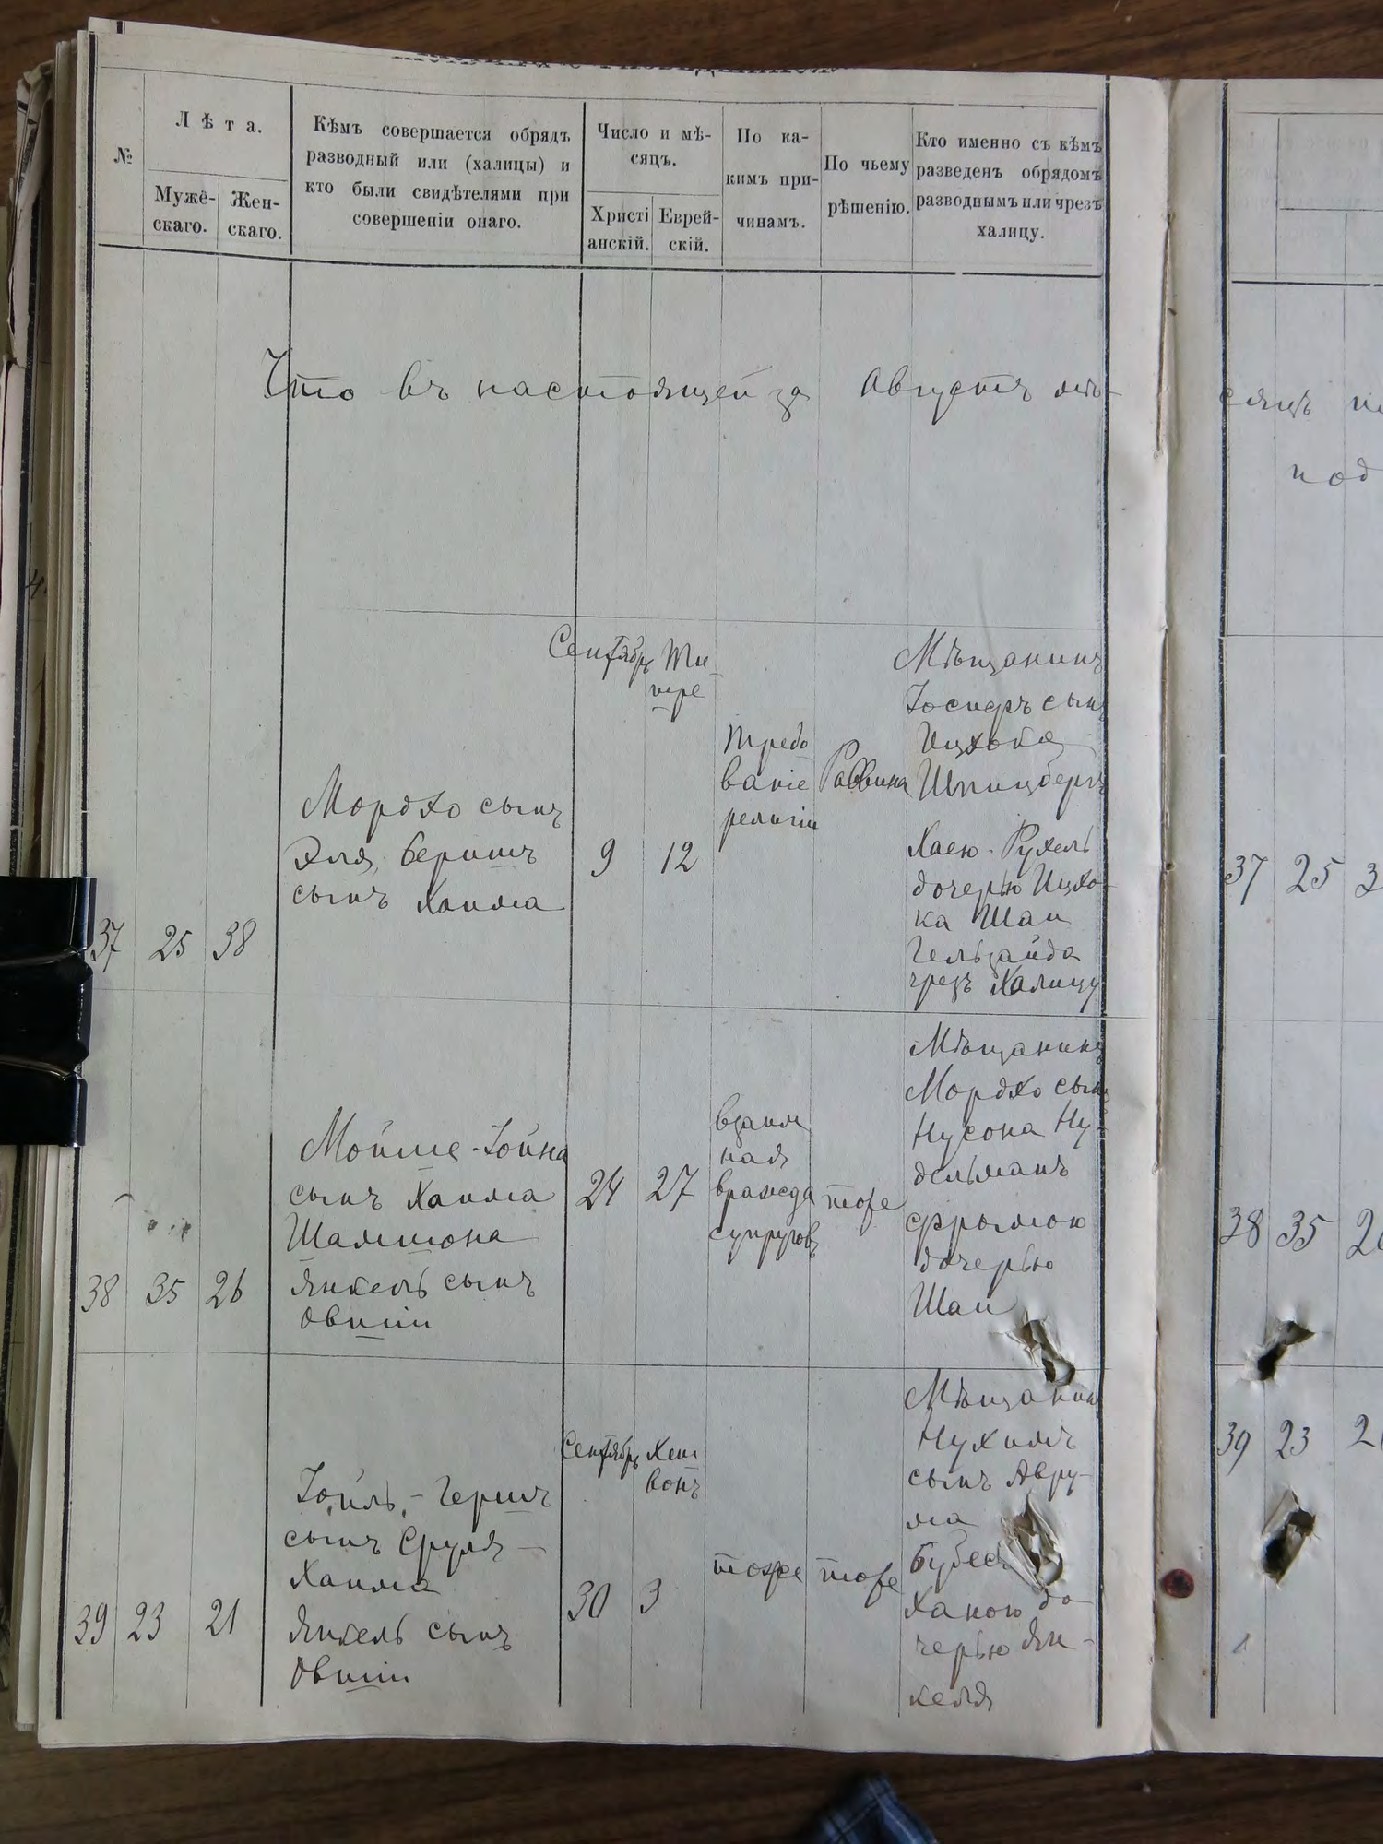 №
Лѣта.
Мужé-
скаго.
Жен-
скаго.
Кѣмъ совершается обрядъ
разводный или (халицы) и
кто были свидѣтелями при
совершеніи онаго.
Число и мѣ-
сяцъ.
Христі
анскій.
Еврей-
скій.
По ка-
кимъ при-
чинамъ.
По чьему
рѣшенію.
Кто именно съ кѣмъ
разведенъ обрядомъ
разводнымъ или чрезъ
халицу.
Что въ настоящей за Августъ мѣ-
сяцъ
под
37
25
38
Мордхо сынъ
Эля, Беришъ
сынъ Хаима
Сентябрь
9
Ти
шре
12
требо
ваніе
религіи
Раввина
Мѣщанинъ
Іосифъ сынъ
Ицхока
Шпицбергъ
Хаею-Рухель
дочерью Ицхо-
ка Шаи
Гельзайда
чрезъ Халицу
37
25
3
38
35
26
Мойше-Іойна
сынъ Хаима
Шамшона
Янкель сынъ
Овшіи
24
27
взаим
ная
вражда
супруговъ
тоже
Мѣщанинъ
Мордхо сынъ
Нусона Ну-
дельманъ
Фромою
дочерью
Шаи
38
35
2
39
23
21
Іойль-Гершъ
сынъ Сруля-
Хаима
Янкель сынъ
Овшіи
Сентябрь
30
Хеш
вонъ
3
тоже
тоже
Мѣщанинъ
Нухимъ
сынъ Авру-
ма
Ханою до-
черью Ян-
келя
39
23
2